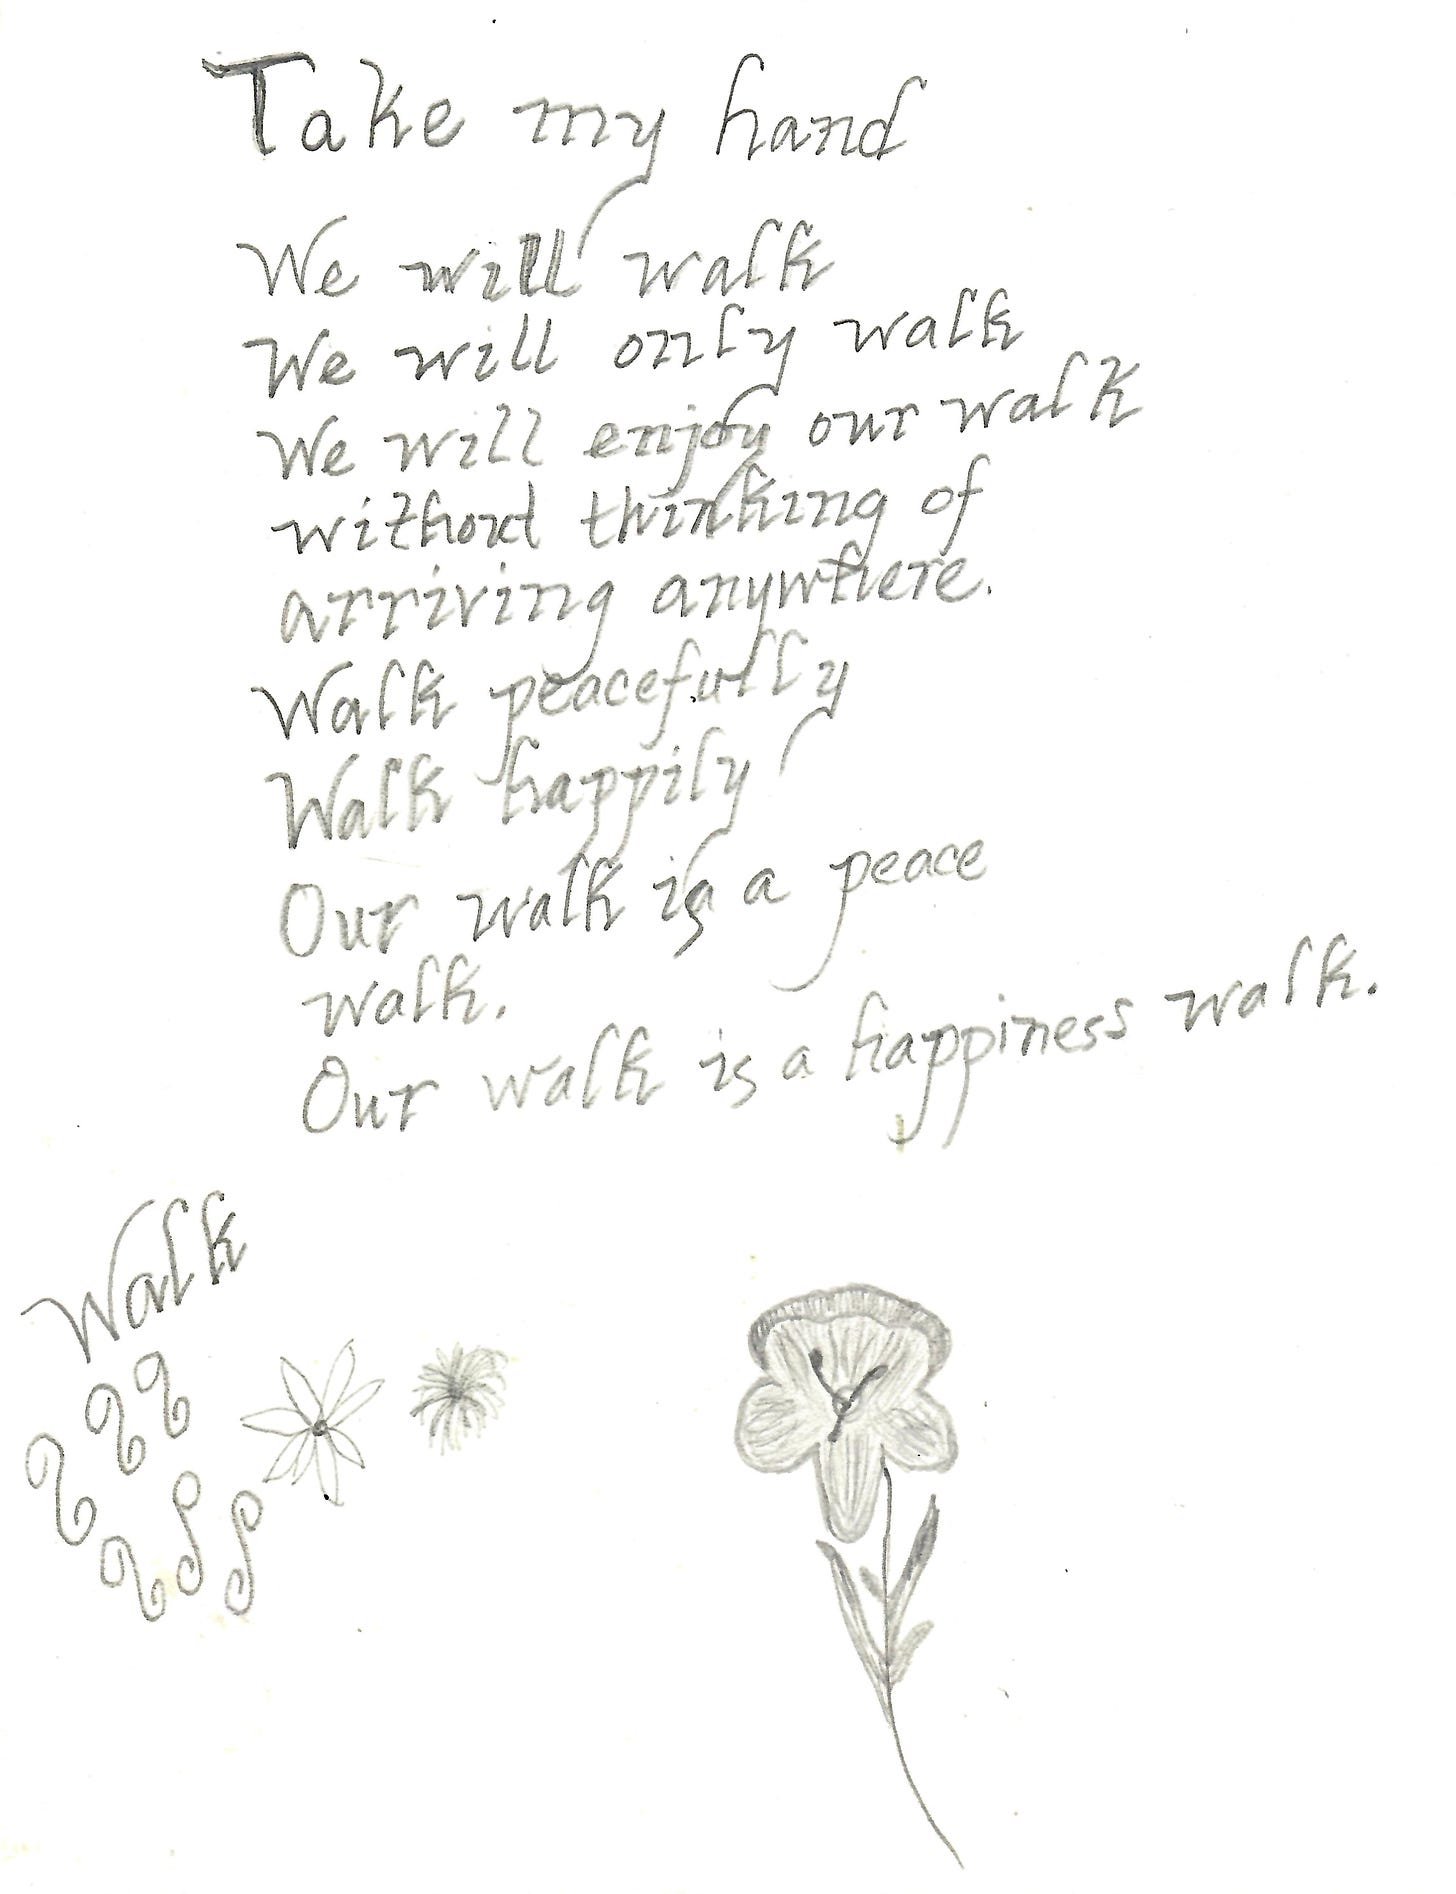 Take my hand
We will walk
We will only walk
We will enjoy our walk
without thinking of
arriving anywhere.
Walk peacefully
Walk happily
Our walk is a peace
walk.
Our walk is a happiness walk.
Walk